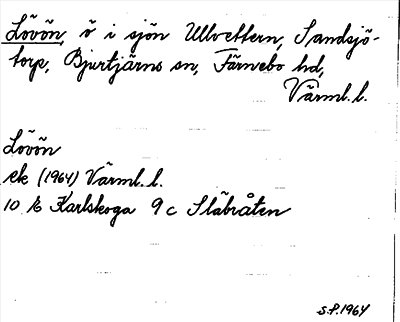 Lövön, ö i sjön Ullvettern, Sandsjö-
torp, Bjurtjärns sn, Färnebo hd,
Värml. l.
Lövön
ek (1964) Värml. l.
10 E Karlskoga 9 c Slåbråten
S.P. 1964